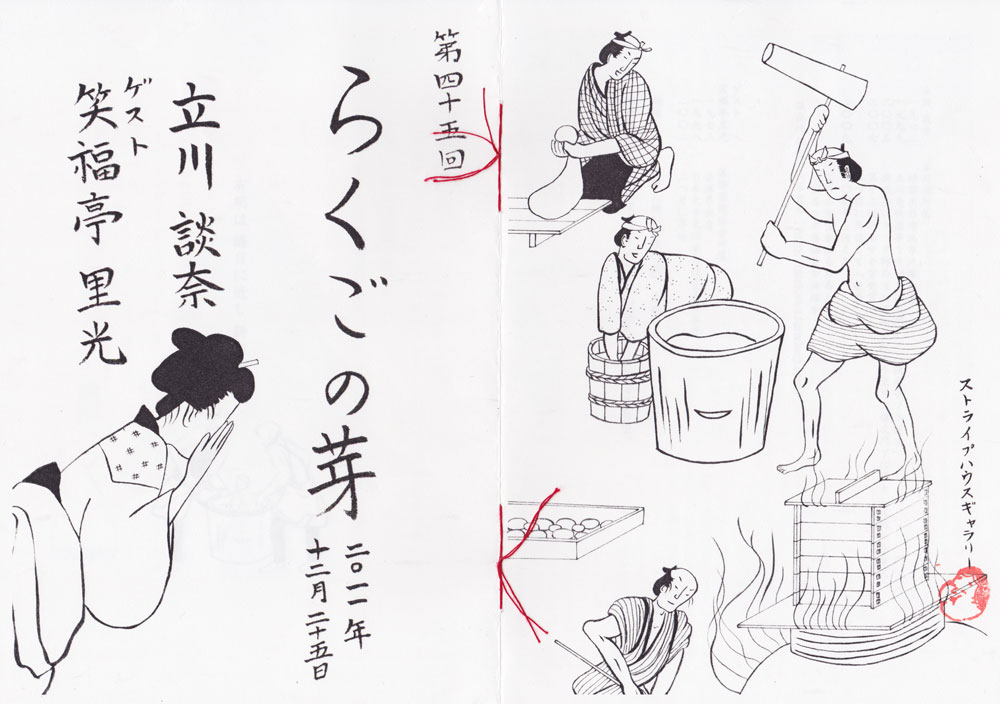 ストライプハウスギャラリー
第四十五回
らくごの芽
二〇一一年
十二月二十五日
立川 談奈
ゲスト
笑福亭 里光